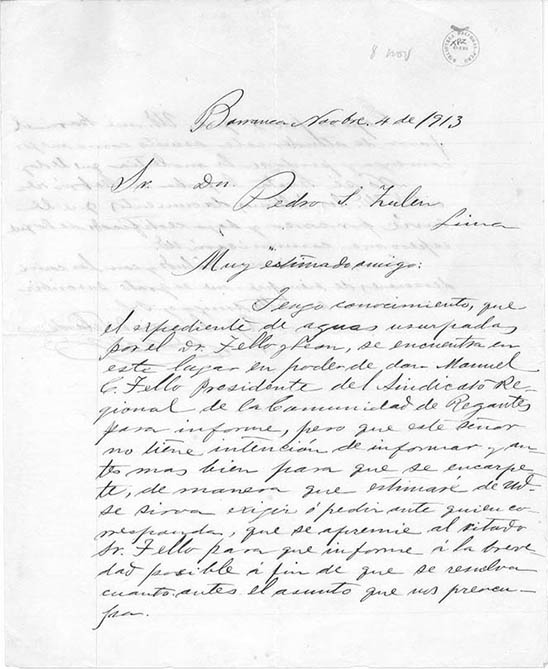 8 Nov
Barranca Novbre. 4 de 1913
Sr. Don
Pedro S. Zulen
Lima
Muy estimado amigo:
Tengo conocimiento, que
el expediente de aguas usurpadas
por el Dr. Tello y Leon, se encuentra en
este lugar en poder de don Manuel
C. Tello Presidente del Sindicato Re-
gional de la Comunidad de Regantes
para informe, pero que este señor
no tiene intención de informar y an-
tes mas bien para que se encarpe-
te, de manera que estimaré de Ud.
se sirva exigir ó pedir ante quien co-
rresponda, que se apremie al citado
Sr. Tello para que informe á la breve-
dad posible á fin de que se resolva
cuanto antes el asunto que nos preocu-
pa.